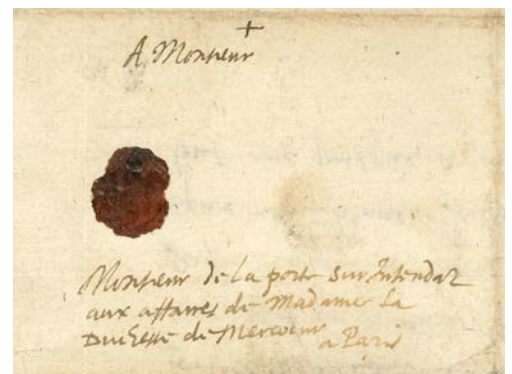 A Monsieur
Monsieur de la porte Sur Intendaz
aux affaires de Madame La
Duchesse de Mercoeur
a Paris